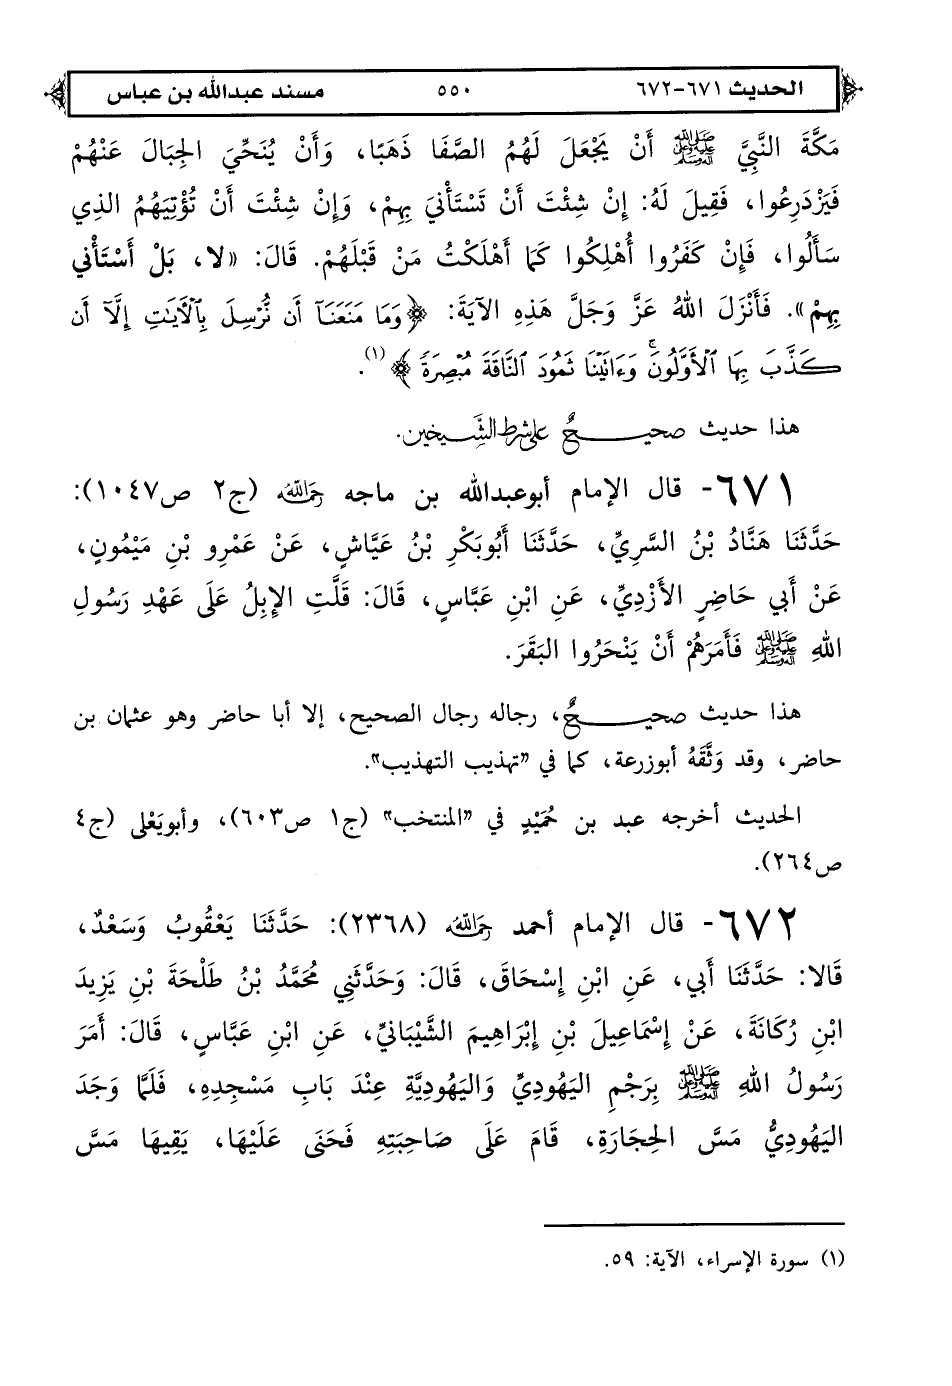 الحديث ٦٧١-٦٧٢ ٥٥٠ مسند عبدالله بن عباس
مَكَّةَ النَّبِيَّ ﷺ أَنْ يَجْعَلَ لَهُمُ الصَّفَا ذَهَبًا، وَأَنْ يُنَحِّيَ الجِبَالَ عَنْهُمْ
فَيَزْدَرِعُوا، فَقِيلَ لَهُ: إِنْ شِئْتَ أَنْ تَسْتَأْنِيَ بِهِمْ، وَإِنْ شِئْتَ أَنْ تُؤْتِيَهُمُ الذِي
سَأَلُوا، فَإِنْ كَفَرُوا أُهْلِكُوا كَمَا أَهْلَكْتُ مَنْ قَبْلَهُمْ. قَالَ: «لا، بَلْ أَسْتَأْنِي
بِهِمْ». فَأَنْزَلَ اللهُ عَزَّ وَجَلَّ هَذِهِ الآيَةَ: ﴿وَمَا مَنَعَنَآ أَن نُّرْسِلَ بِٱلْأَيَـٰتِ إِلَّآ أَن
كَذَّبَ بِهَا ٱلْأَوَّلُونَ ۚ وَءَاتَيْنَا ثَمُودَ ٱلنَّاقَةَ مُبْصِرَةً﴾ (١).
هذا حديث صحيحٌ على شرط الشَّيخين.
٦٧١- قال الإمام أبوعبدالله بن ماجه رحمه الله (ج٢ ص١٠٤٧):
حَدَّثَنَا هَنَّادُ بْنُ السَّرِيِّ، حَدَّثَنَا أَبُوبَكْرِ بْنُ عَيَّاشٍ، عَنْ عَمْرِو بْنِ مَيْمُونٍ،
عَنْ أَبِي حَاضِرٍ الأَزْدِيِّ، عَنِ ابْنِ عَبَّاسٍ، قَالَ: قَلَّتِ الإِبِلُ عَلَى عَهْدِ رَسُولِ
اللهِ ﷺ فَأَمَرَهُمْ أَنْ يَنْحَرُوا البَقَرَ.
هذا حديث صحيحٌ، رجاله رجال الصحيح، إلا أبا حاضر وهو عثمان بن
حاضر، وقد وَثَّقَهُ أبوزرعة، كما في "تهذيب التهذيب".
الحديث أخرجه عبد بن حُمَيْدٍ في "المنتخب" (ج١ ص٦٠٣)، وأبويَعْلى (ج٤
ص٢٦٤).
٦٧٢- قال الإمام أحمد رحمه الله (٢٣٦٨): حَدَّثَنَا يَعْقُوبُ وَسَعْدٌ،
قَالا: حَدَّثَنَا أَبِي، عَنِ ابْنِ إِسْحَاقَ، قَالَ: وَحَدَّثَنِي مُحَمَّدُ بْنُ طَلْحَةَ بْنِ يَزِيدَ
ابْنِ رُكَانَةَ، عَنْ إِسْمَاعِيلَ بْنِ إِبْرَاهِيمَ الشَّيْبَانِيِّ، عَنِ ابْنِ عَبَّاسٍ، قَالَ: أَمَرَ
رَسُولُ اللهِ ﷺ بِرَجْمِ اليَهُودِيِّ وَاليَهُودِيَّةِ عِنْدَ بَابِ مَسْجِدِهِ، فَلَمَّا وَجَدَ
اليَهُودِيُّ مَسَّ الحِجَارَةِ، قَامَ عَلَى صَاحِبَتِهِ فَحَنَى عَلَيْهَا، يَقِيهَا مَسَّ
(١) سورة الإسراء، الآية: ٥٩.